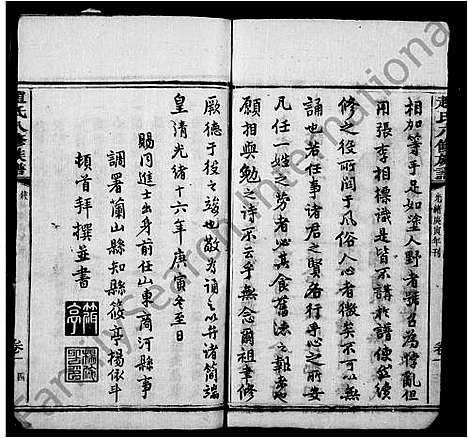 趙氏八修族譜
光緒庚寅年刊
卷一
相加等于足如塗人野者號召為悖亂但
用張李相標識是皆不講於譜使然續
修之時所關于風俗人心者微矣不可以無
誦也若任事諸君之賢名行乎心之所安
凡任一姓之勞者必其食舊法之報者也
願相與勉之詩不云乎無念爾祖聿修
厥德于役之竣也敬為誦之以弁諸簡端
皇清光緒十六年庚寅冬至日
賜同進士出身前任山東商河縣事
調署蘭山縣知縣筱亭楊依斗
頓首拜撰並書
筱亭
楊依斗印
趙氏八修族譜
卷一
四
FamilySearch International